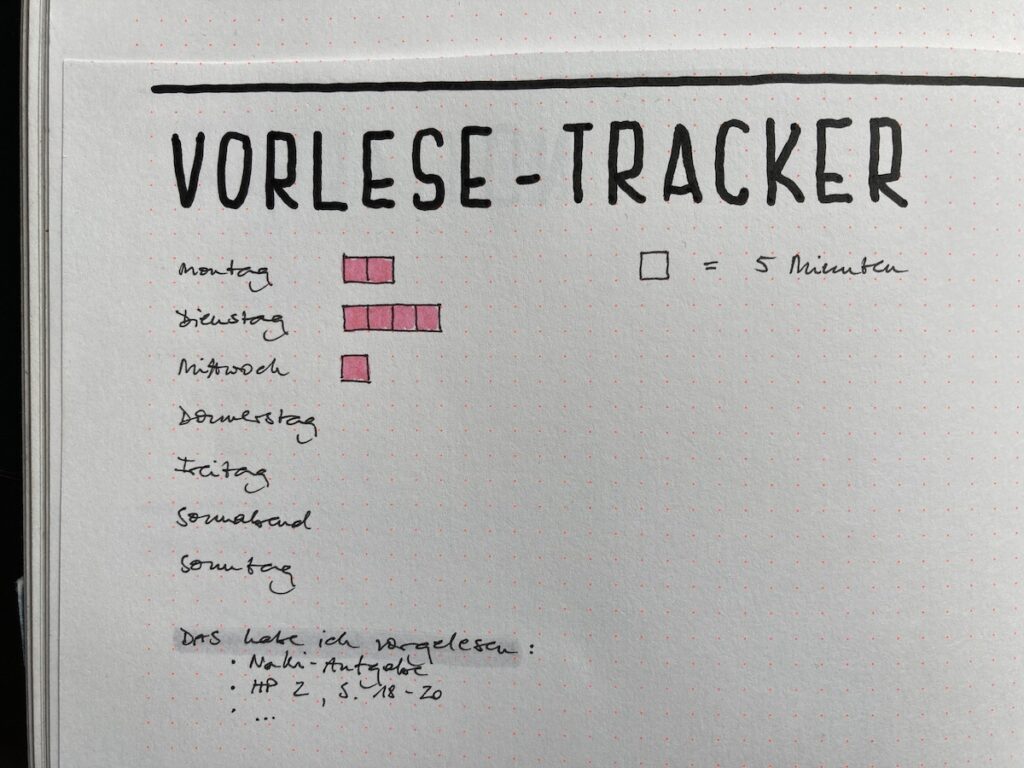 VORLESE-TRACKER
Montag
= 5 Minuten
Dienstag
Mittwoch
Donnerstag
Freitag
Sonnabend
Sonntag
DAS habe ich vorgelesen:
• Naki-Aufgabe
• HP 2, S. 18-20
• ...